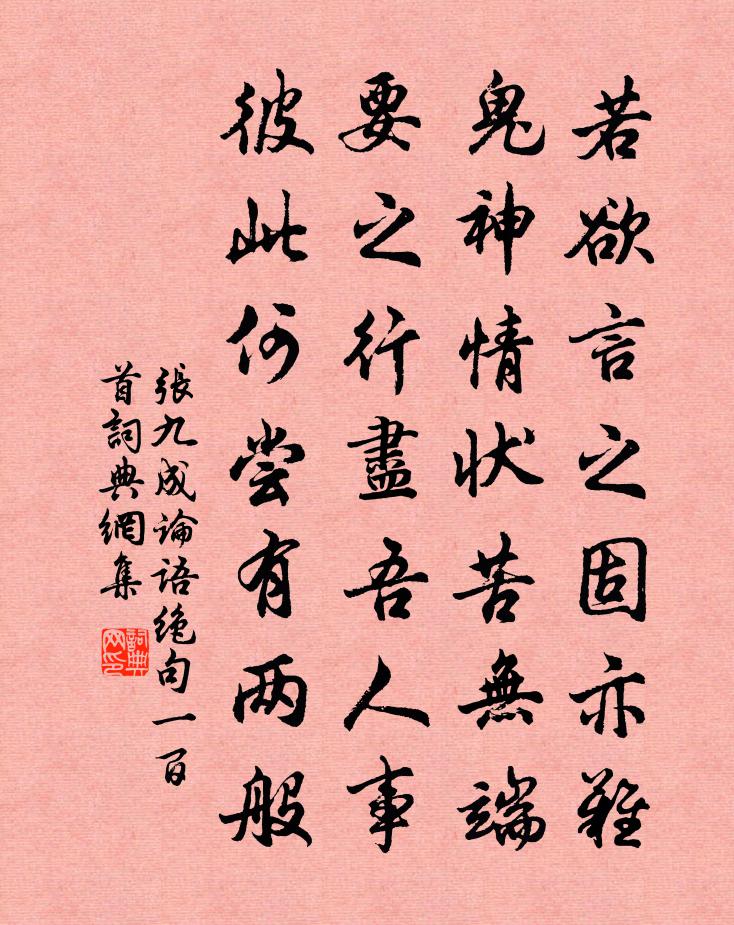 若欲言之固亦難
鬼神情狀苦無端
要之行盡吾人事
彼此何尝有两般
張九成論語絶句一百
首詞典網集
詞典网印